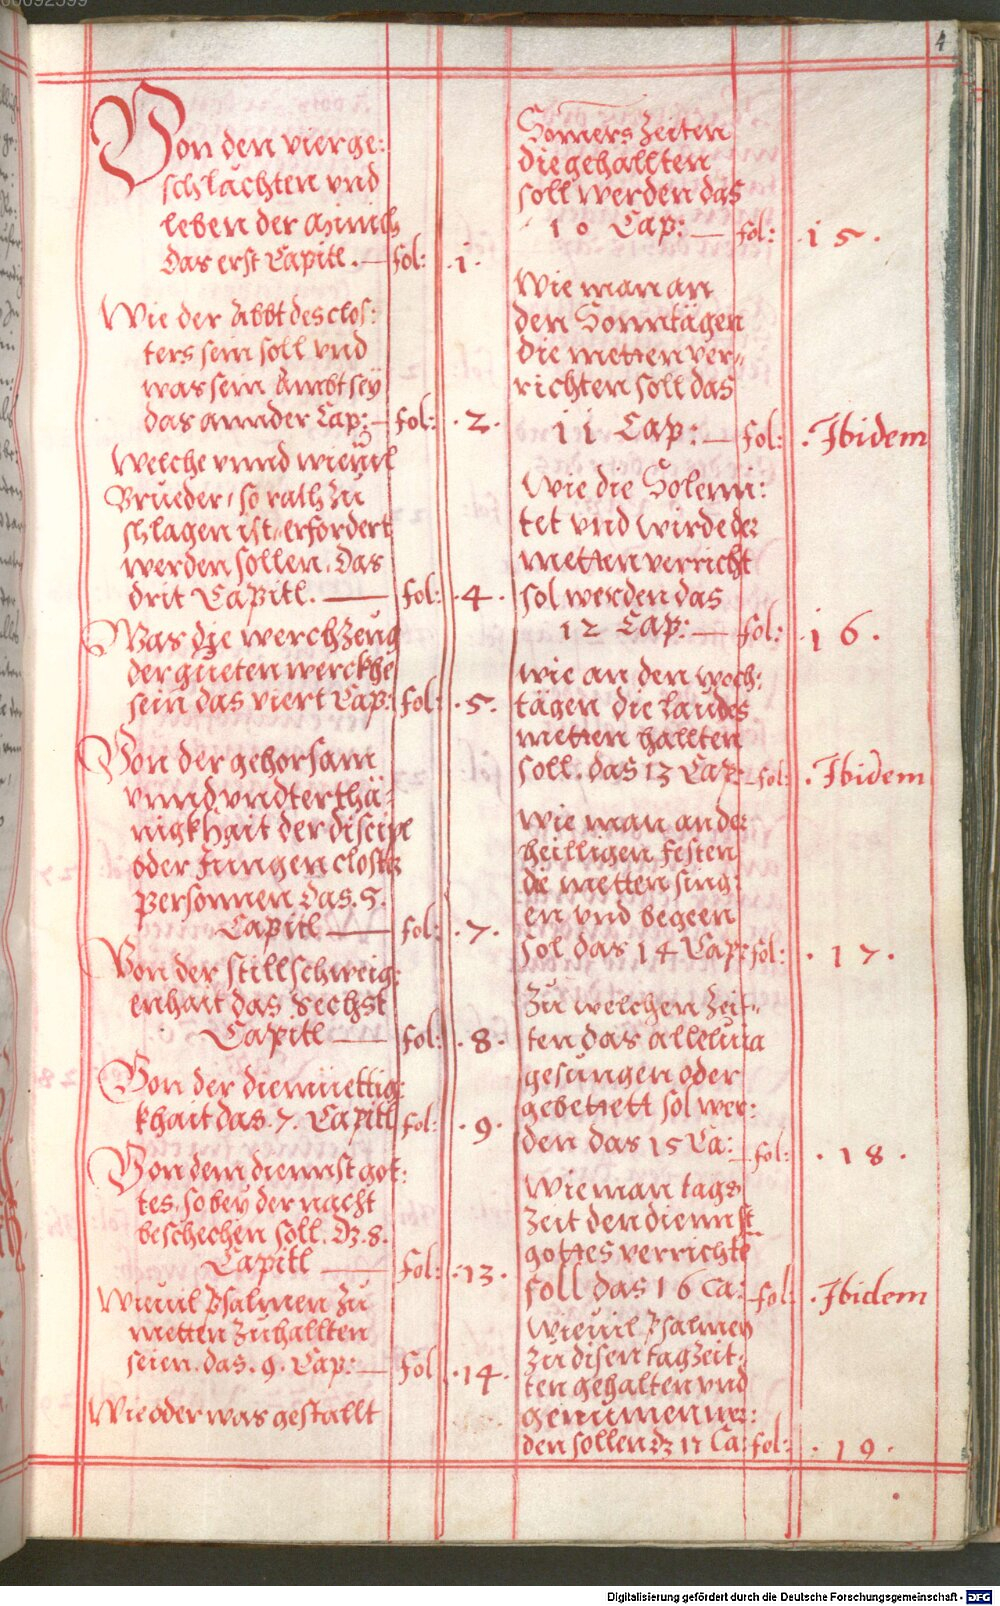 4
Von den vierge:
schlächten vnd
leben der Münich
Das erst Capitl. — fol: .1.
Wie der Abbt des clos:
ters sein soll vnd
was sein Ambt seÿ
das annder Cap: — fol: .2.
Welche vnnd wieuil
Brueder, so rath zu
schlagen ist, erfordert
werden sollen. Das
drit Capitl. — fol: .4.
Was die werchzeug
der gueten werckhe
sein das viert Cap: fol: .5.
Von der gehorsam
vnnd vndterthä:
nigkhait der discipl
oder Jungen closter
personnen das .5.
Capitl — fol: .7.
Von der stillschweig:
enhait das sechst
Capitl — fol: .8.
Von der diemüettig:
khait das .7. Capitl fol: .9.
Von dem diennst got:
tes, so bey der nacht
beschechen soll. Dz .8.
Capitl — fol: .13.
Wieuil Psalmen zu
metten zuhallten
seien. das .9. Cap: — fol .14.
Wie oder was gestallt
Somers zeiten
die gehallten
soll werden das
10 Cap: — fol: .15.
Wie man an
den Sonntägen
die metten ver„
richten soll das
11 Cap: — fol: .Ibidem
Wie die Solemni:
tet vnd wirde der
metten verricht
sol werden das
12 Cap: — fol: .16.
wie an den woch:
tägen die laudes
metten hallten
soll. das 13 Cap: fol: .Ibidem
wie man an der
heilligen festen
die metten sing:
en vnd begeen
sol das 14 Cap: fol: .17.
Zu welchen Zeit„
ten das alleluia
gesungen oder
gebettett sol wer:
den das 15 Ca: — fol: .18.
Wie man tags
Zeit den diennst
gottes verrichten
soll das 16 Ca: — fol: .Ibidem
Wieuil Psalmen
zu disen tagzeit:
ten gehalten vnd
genumen wer:
den sollen dz 17 Ca: fol: .19.
Digitalisierung gefördert durch die Deutsche Forschungsgemeinschaft - DFG